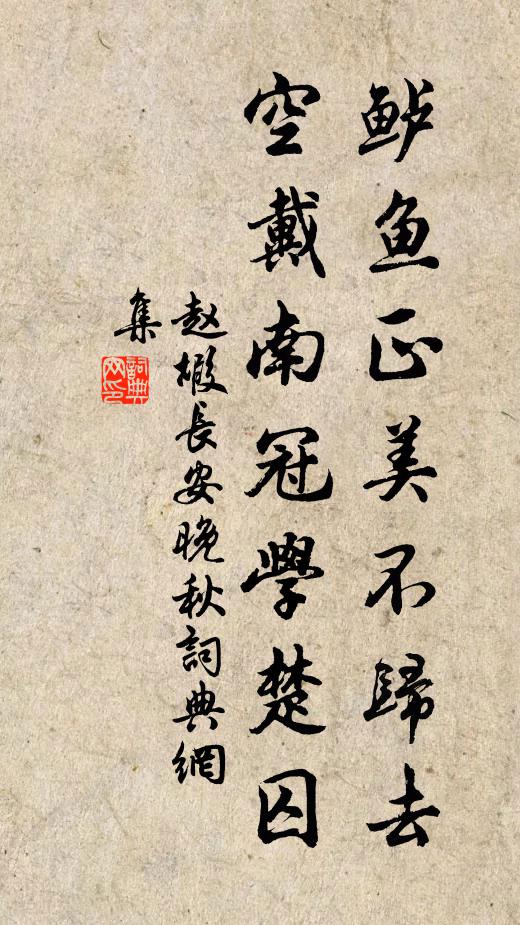 鲈鱼正美不歸去
空戴南冠學楚囚
赵嘏長安晚秋詞典網
集
詞典
网印